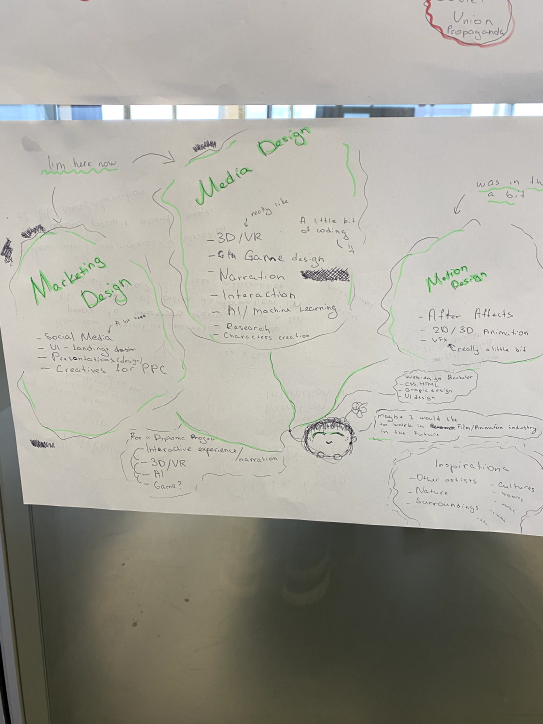 Union
Propaganda
I'm here now
Media Design
was in th
a bit
mostly like
A little bit
of coding
- 3D/VR
- Game design
- Narration
- Interaction
- AI/Machine Learning
- Research
- Characters creation
Marketing
Design
- Social Media
- UI - Landings
- Presentations (design)
- Creatives for PPC
Motion
Design
- After Affects
- 2D/3D Animation
- VFX
really a little bit
- CSS, HTML
- Grapic design
- UI design
Maybe I would like
to work in Film/Animation industry
in the future
For a Diplome Project
- Interactive experience/narration
- 3D/VR
- AI
- Game?
Inspirations
- Other artists
- Nature
- Surroundings
- Cultures